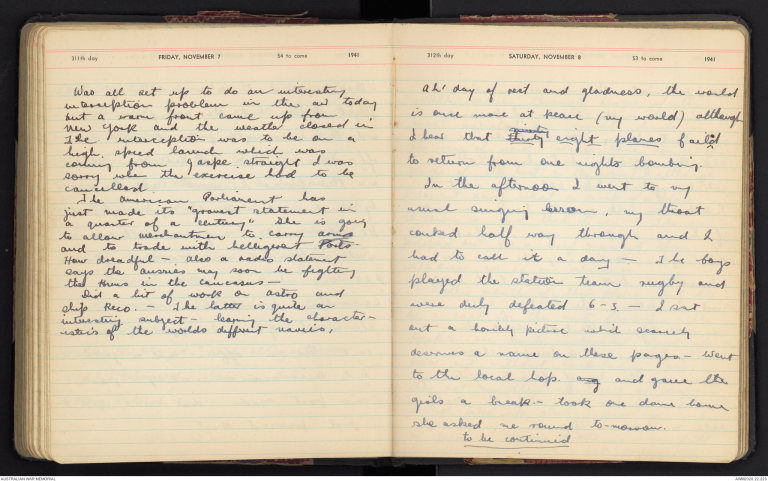 311th day FRIDAY, NOVEMBER 7 54 to come 1941
Was all set up to do an interesting
interseption problem in the air today
but a warm front came up from
New York and the weather closed in
The interseption was to be on a
high speed launch which was
coming from Gaspe straight I was
sorry when the exercise had to be
cancelled.
The American Parliament has
just made its "gravest statement in
a quarter of a century" She is going
to allow merchantmen to carry arms
and to trade with belligerent Ports-
How dreadful - also a radio statement
says the aussies may soon be fighting
the Huns in the caucasus -
Did a bit of work on astro and
ship Reco. - The latter is quite an
interesting subject - learning the character-
istics of the worlds different navies.
312th day SATURDAY, NOVEMBER 8 53 to come 1941
Ah! day of rest and gladness, the world
is once more at peace (my world) although
I hear that thirty eight planes failed
to return from one nights bombing.
In the afternoon I went to my
usual singing lesson, my throat
conked half way through and I
had to call it a day - The boys
played the station team rugby and
were duly defeated 6-3. - I sat
out a horrible picture which scarcely
deserves a name on these pages - Went
to the local hop. and gave the
girls a break - took one dame home
she asked me round to-morrow.
to be continued
AUSTRALIAN WAR MEMORIAL